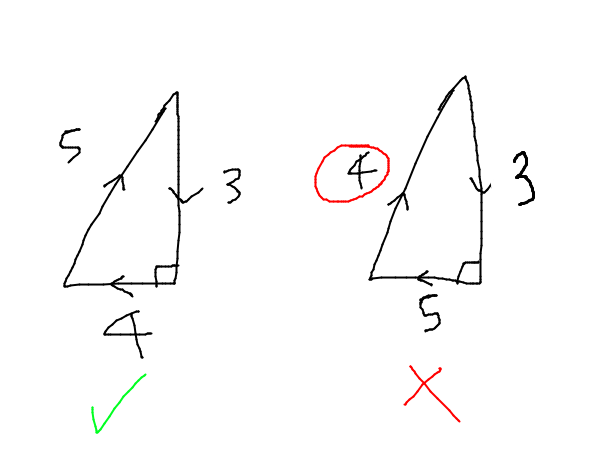 5
3
4
4
3
5